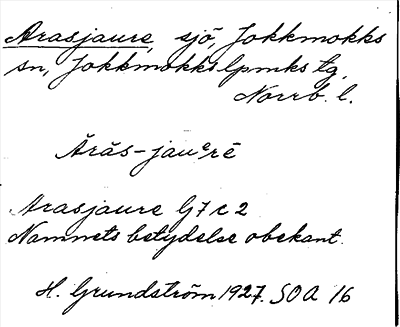 Arasjaure, sjö, Jokkmokks
sn, Jokkmokks lpmks tg,
Norrb. l.
Ărăs-jauᵉrē
Arasjaure Gj7c2
Namnets betydelse obekant.
H. Grundström 1927. SOA 16